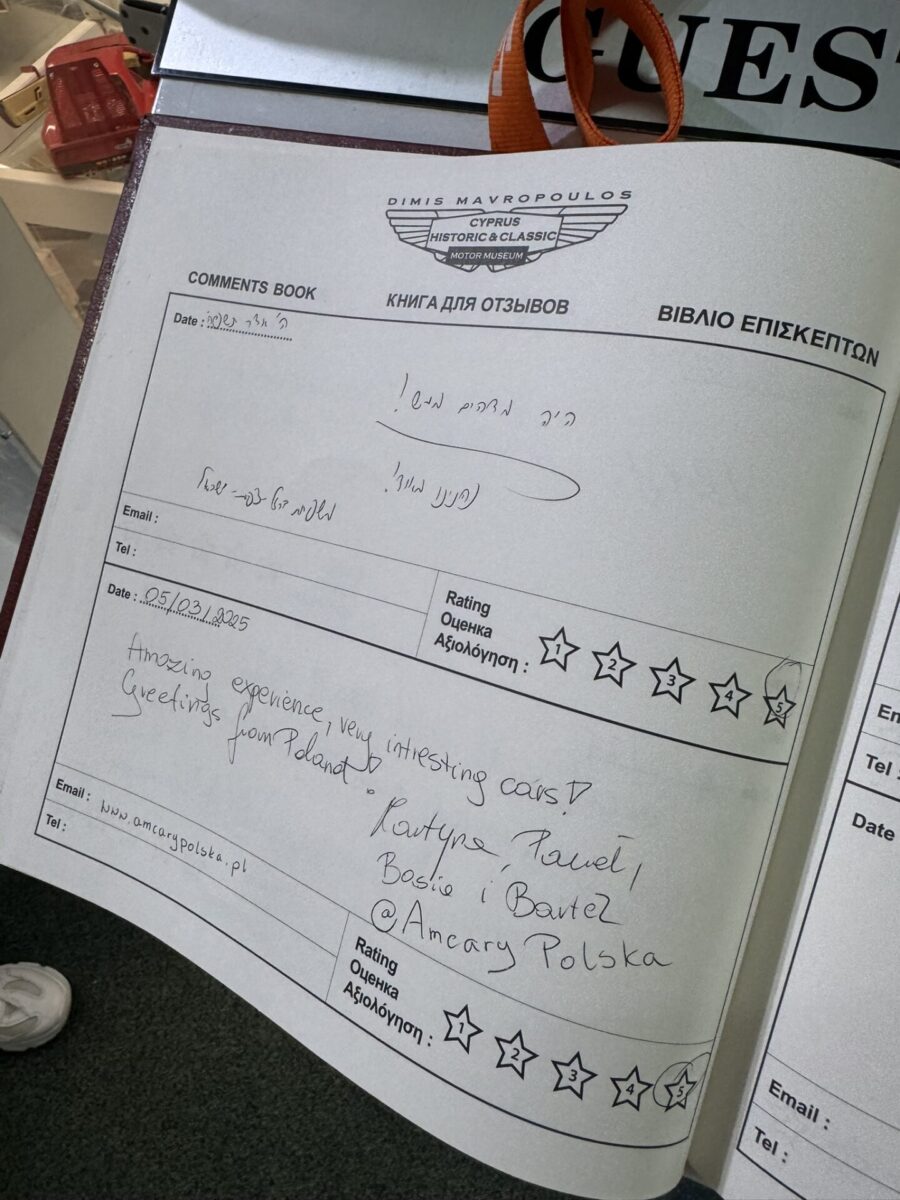 GUEST
DIMIS MAVROPOULOS
CYPRUS
HISTORIC & CLASSIC
MOTOR MUSEUM
COMMENTS BOOK
КНИГА ДЛЯ ОТЗЫВОВ
ΒΙΒΛΙΟ ΕΠΙΣΚΕΠΤΩΝ
Date : ה' אדר תשפ"ה
היה מדהים ממש!
נהנינו מאוד!
משפחת
Email :
Tel :
Rating
Оценка
Αξιολόγηση :
1 2 3 4 5
Date : 05/03/2025
Amazing experience, very intresting cars!
Greetings from Poland!
Email : www.amcarypolska.pl
Tel :
Martyna, Paweł,
Basia i Bartek
@Amcary Polska
Rating
Оценка
Αξιολόγηση :
1 2 3 4 5
Em
Tel :
Date
Email :
Tel :